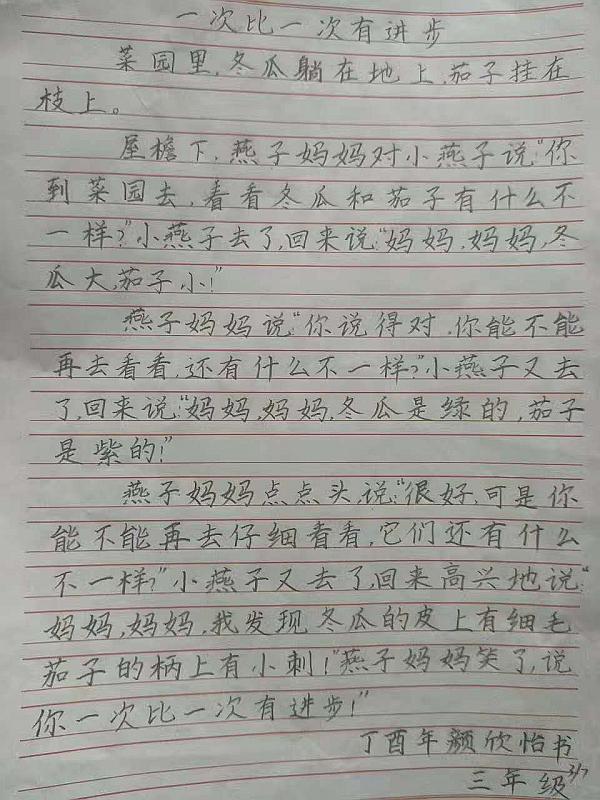 一次比一次有进步
菜园里,冬瓜躺在地上,茄子挂在
枝上。
屋檐下,燕子妈妈对小燕子说:“你
到菜园去,看看冬瓜和茄子有什么不
一样?”小燕子去了,回来说:“妈妈,妈妈,冬
瓜大,茄子小!”
燕子妈妈说:“你说得对,你能不能
再去看看,还有什么不一样?”小燕子又去
了,回来说:“妈妈,妈妈,冬瓜是绿的,茄子
是紫的!”
燕子妈妈点点头,说:“很好,可是你
能不能再去仔细看看,它们还有什么
不一样?”小燕子又去了,回来高兴地说:“
妈妈,妈妈,我发现冬瓜的皮上有细毛
茄子的柄上有小刺!”燕子妈妈笑了,说
你一次比一次有进步!”
丁酉年颜欣怡书
三年级3/7